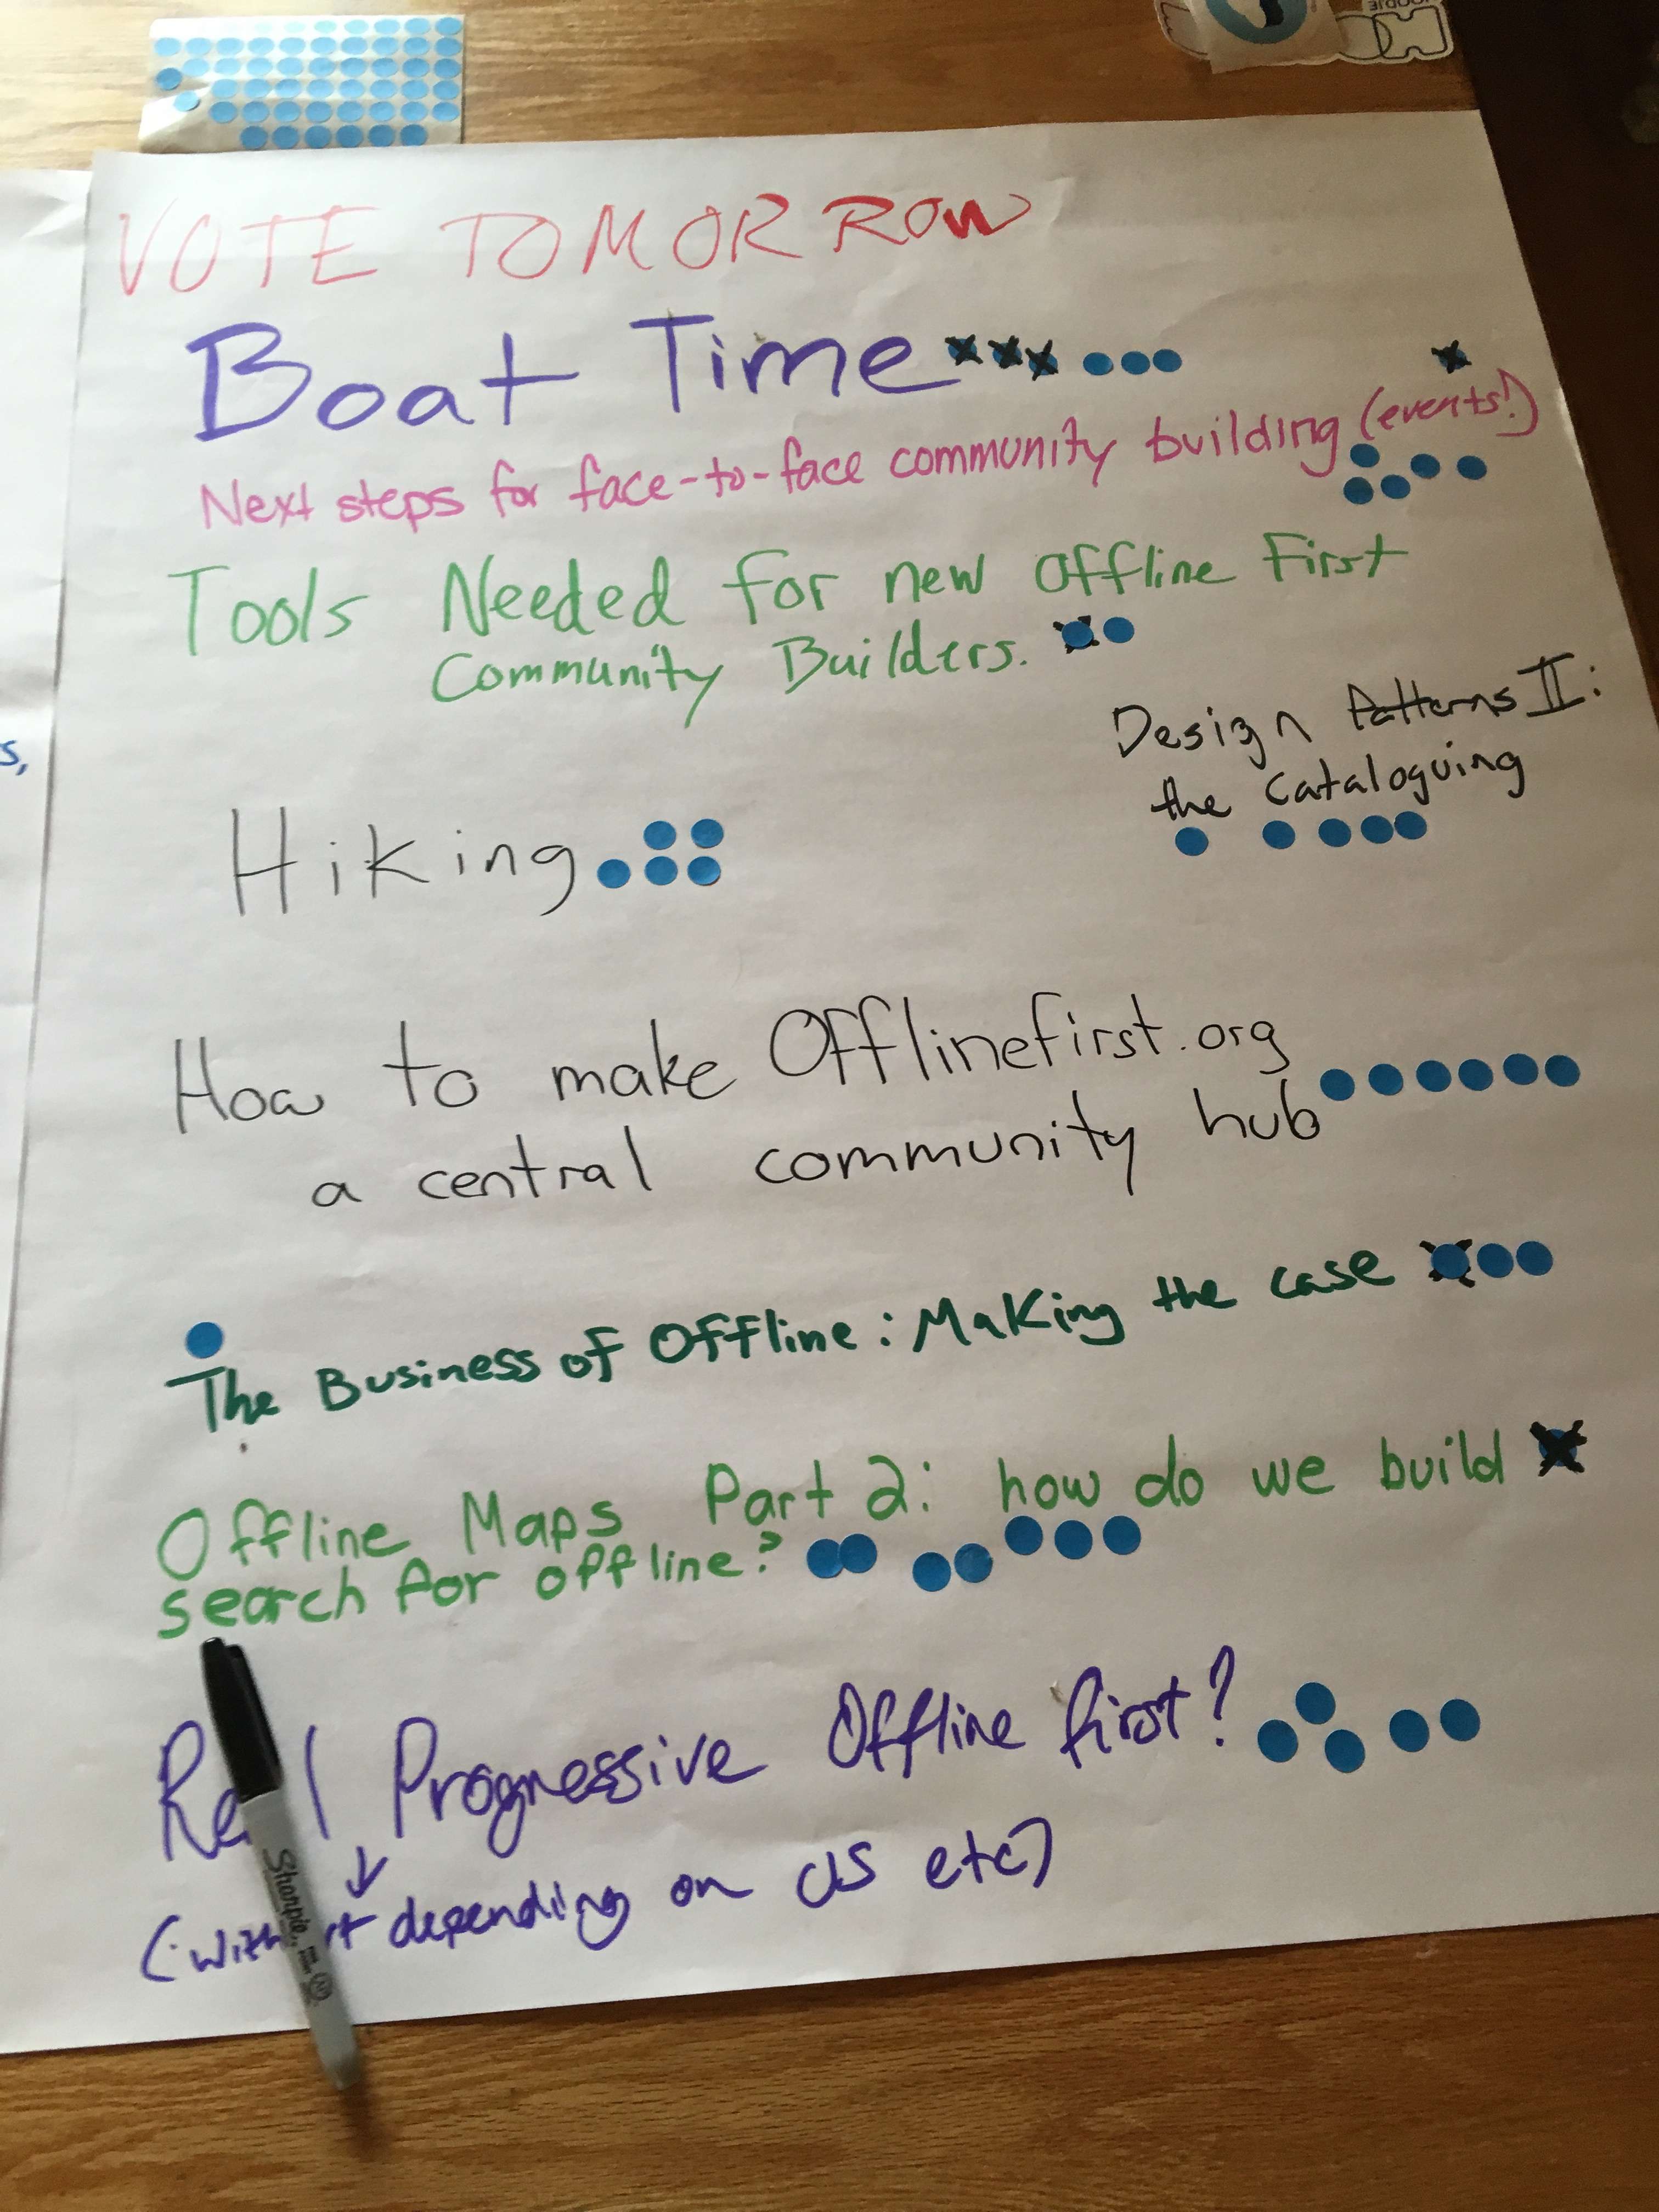 VOTE TOMORROW
Boat Time
Next steps for face-to-face community building (events!)
Tools Needed for new Offline First
Community Builders.
Design Patterns II:
the Cataloguing
Hiking
How to make Offlinefirst.org
a central community hub
The Business of Offline: Making the case
Offline Maps Part 2: how do we build
search for offline?
Real Progressive Offline first?
(without depending on JS etc)
Sharpie
s,